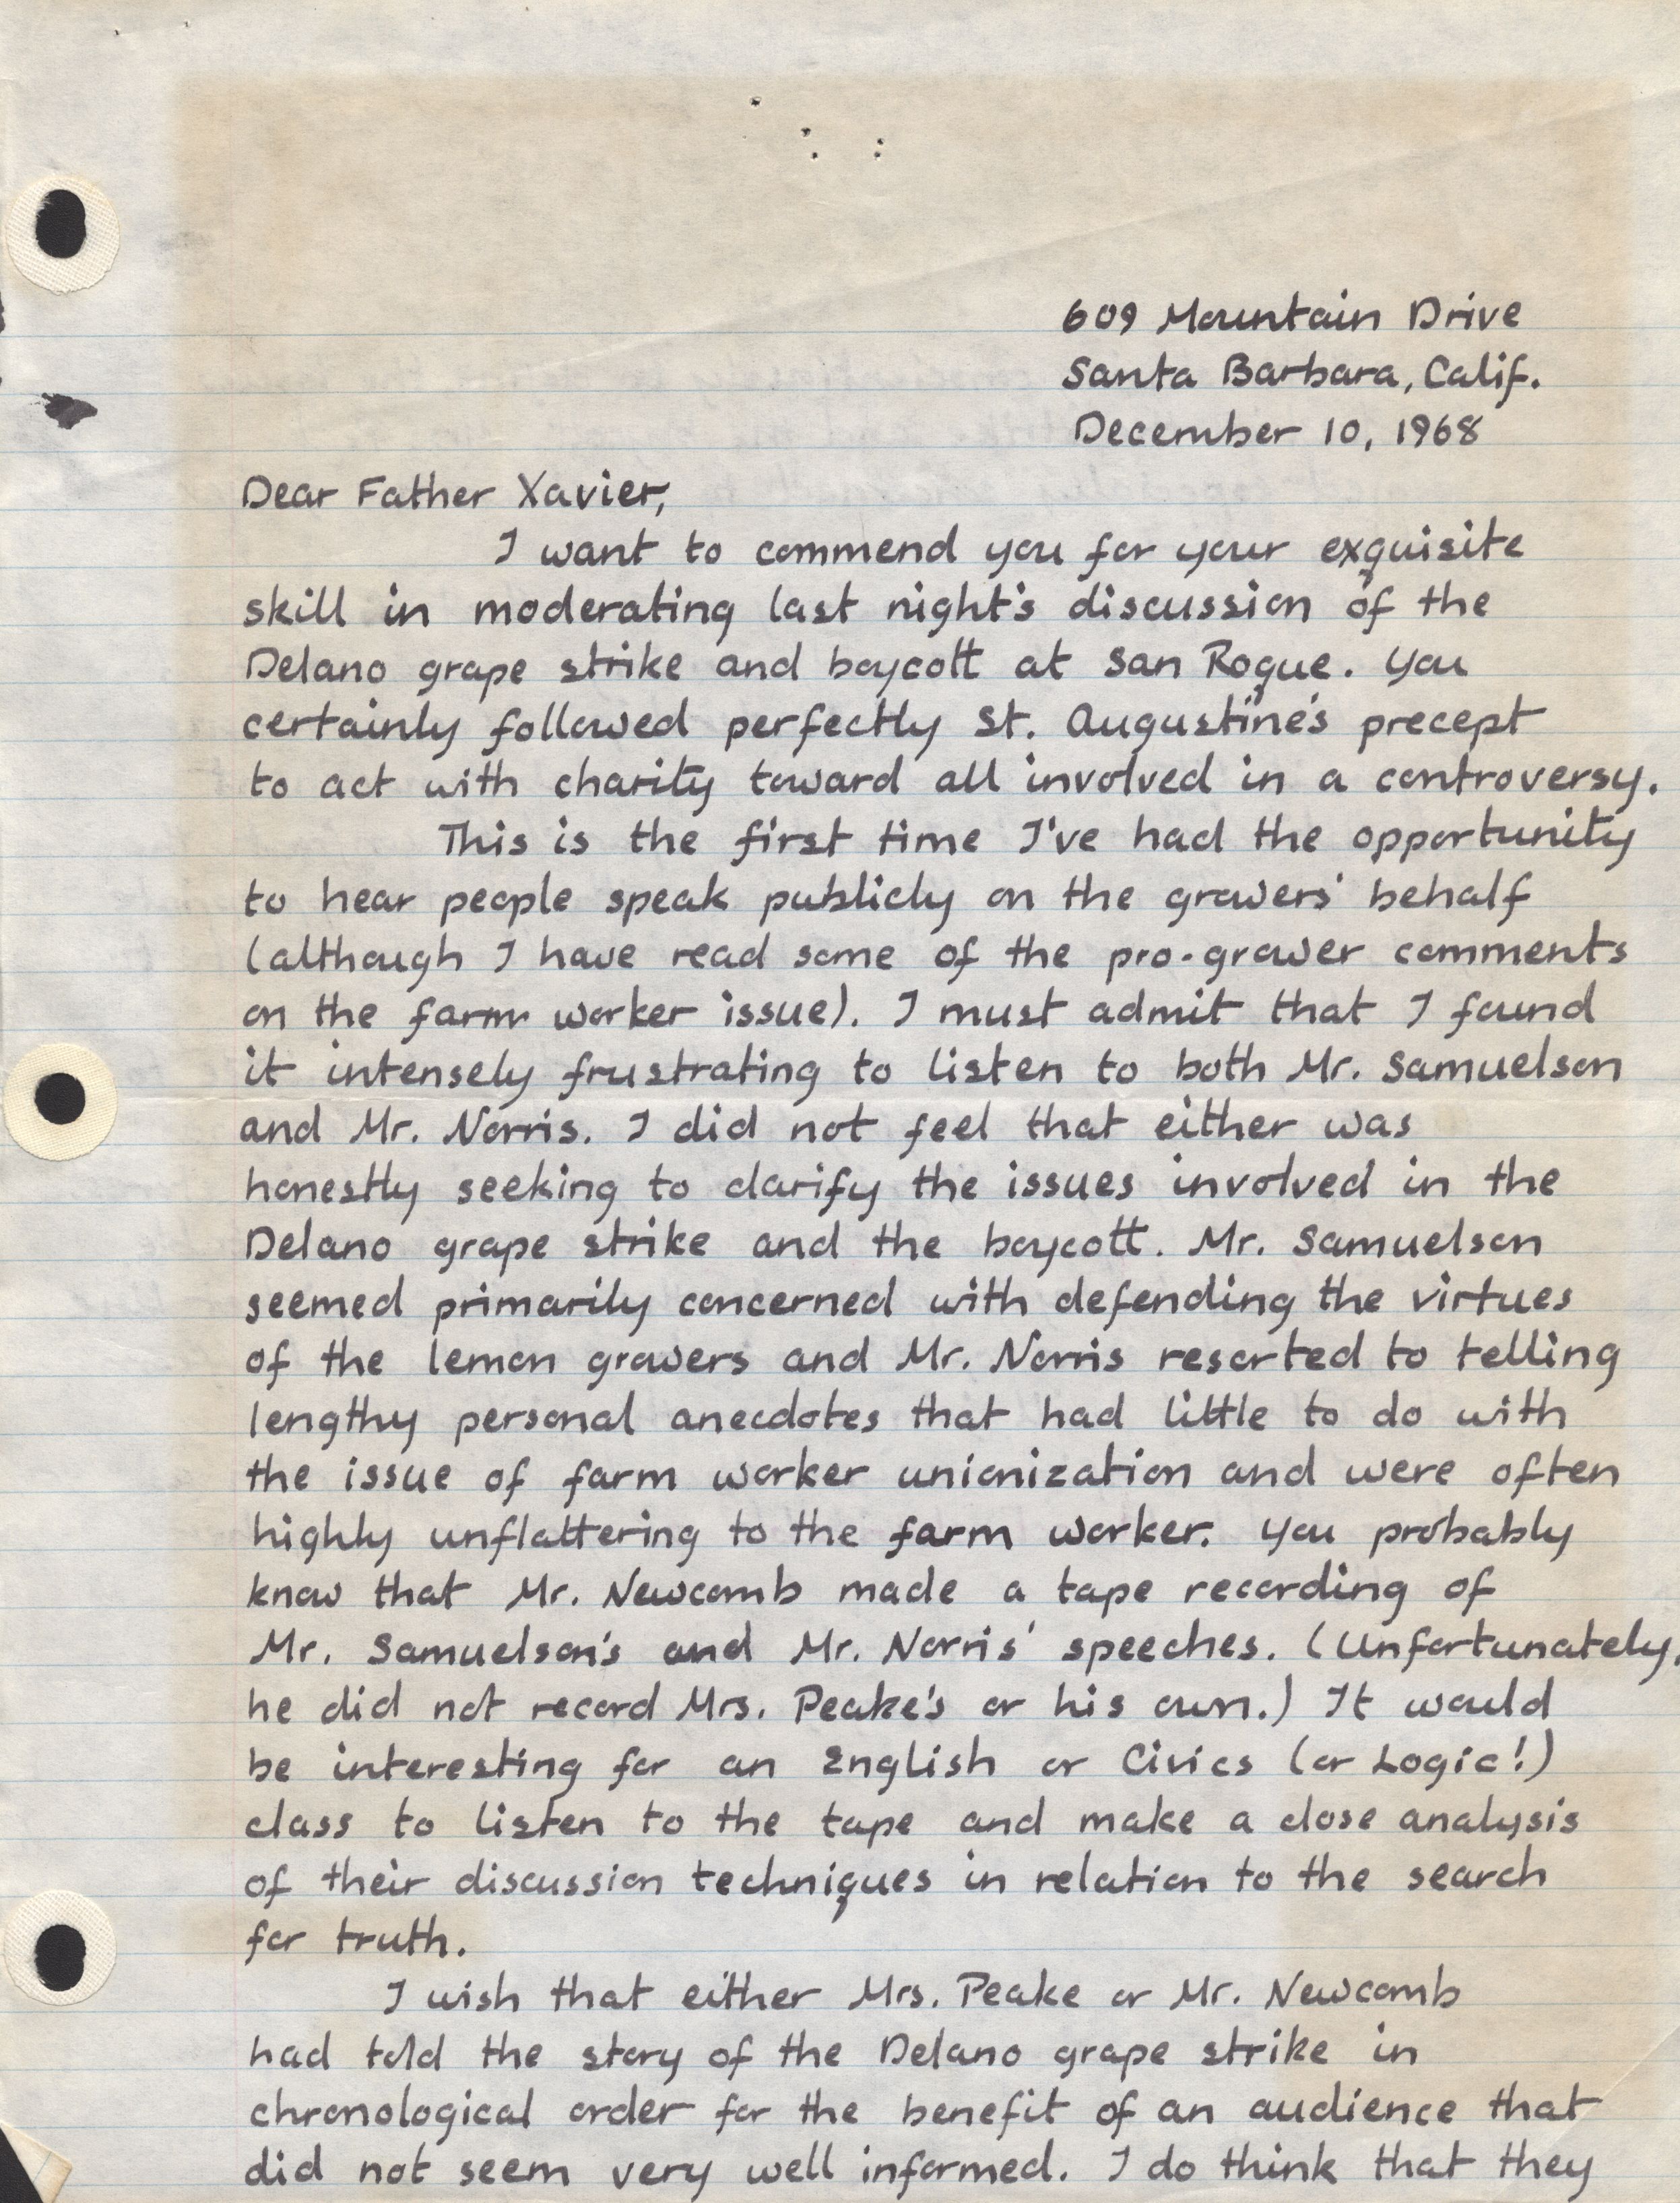 609 Mountain Drive
Santa Barbara, Calif.
December 10, 1968
Dear Father Xavier,
I want to commend you for your exquisite
skill in moderating last night's discussion of the
Delano grape strike and boycott at San Roque. You
certainly followed perfectly St. Augustine's precept
to act with charity toward all involved in a controversy.
This is the first time I've had the opportunity
to hear people speak publicly on the growers' behalf
(although I have read some of the pro-grower comments
on the farm worker issue). I must admit that I found
it intensely frustrating to listen to both Mr. Samuelson
and Mr. Norris. I did not feel that either was
honestly seeking to clarify the issues involved in the
Delano grape strike and the boycott. Mr. Samuelson
seemed primarily concerned with defending the virtues
of the lemon growers and Mr. Norris resorted to telling
lengthy personal anecdotes that had little to do with
the issue of farm worker unionization and were often
highly unflattering to the farm worker. You probably
know that Mr. Newcomb made a tape recording of
Mr. Samuelson's and Mr. Norris' speeches. (Unfortunately,
he did not record Mrs. Peake's or his own.) It would
be interesting for an English or Civics (or Logic!)
class to listen to the tape and make a close analysis
of their discussion techniques in relation to the search
for truth.
I wish that either Mrs. Peake or Mr. Newcomb
had told the story of the Delano grape strike in
chronological order for the benefit of an audience that
did not seem very well informed. I do think that they